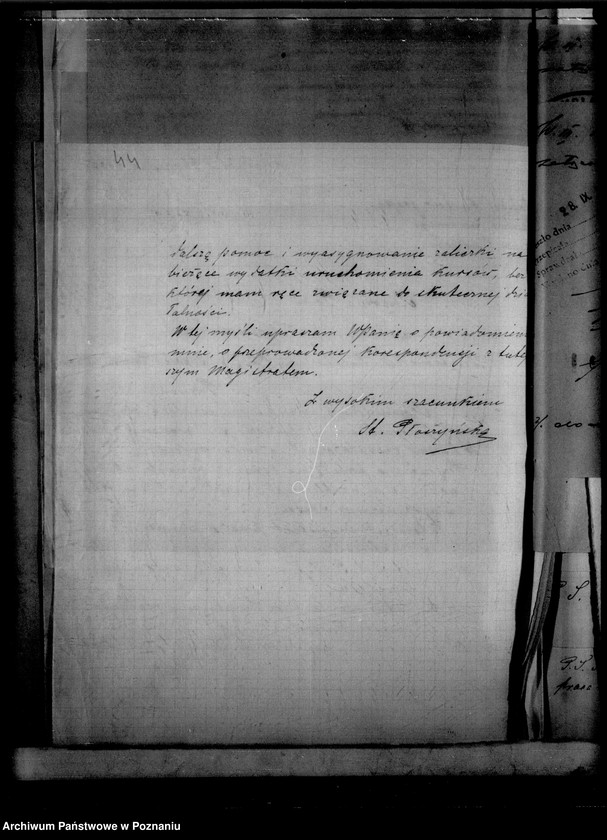 44
dalszą pomoc i wyasygnowanie zaliczki na
bieżące wydatki uruchomienia kursów, bez
której mam ręce związane do skutecznej dzia
łalności.
W tej myśli upraszam WPanią o powiadomieni
mnie, o przeprowadzonej korespondencji z tutej
szym Magistratem.
Z wysokim szacunkiem
St. Płoszyńska
28. IX
P. S.
Archiwum Państwowe w Poznaniu